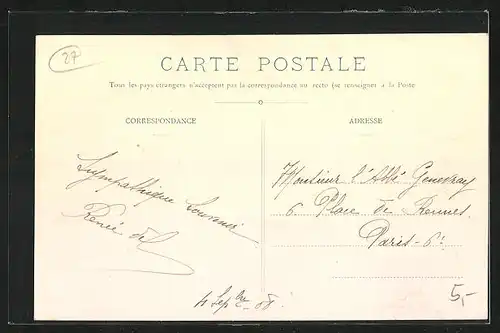 27
CARTE POSTALE
Tous les pays étrangers n'acceptent pas la correspondance au recto (se renseigner à la Poste
CORRESPONDANCE
ADRESSE
Sympathique Souvenir
Renée
Monsieur l'Abbé Genevray
6 Place de Rennes
Paris-6e
4 Sepbre 08
5,-